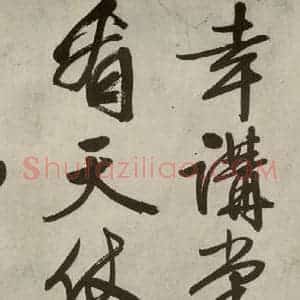 幸講堂
看天仗
Shufaziliao.com